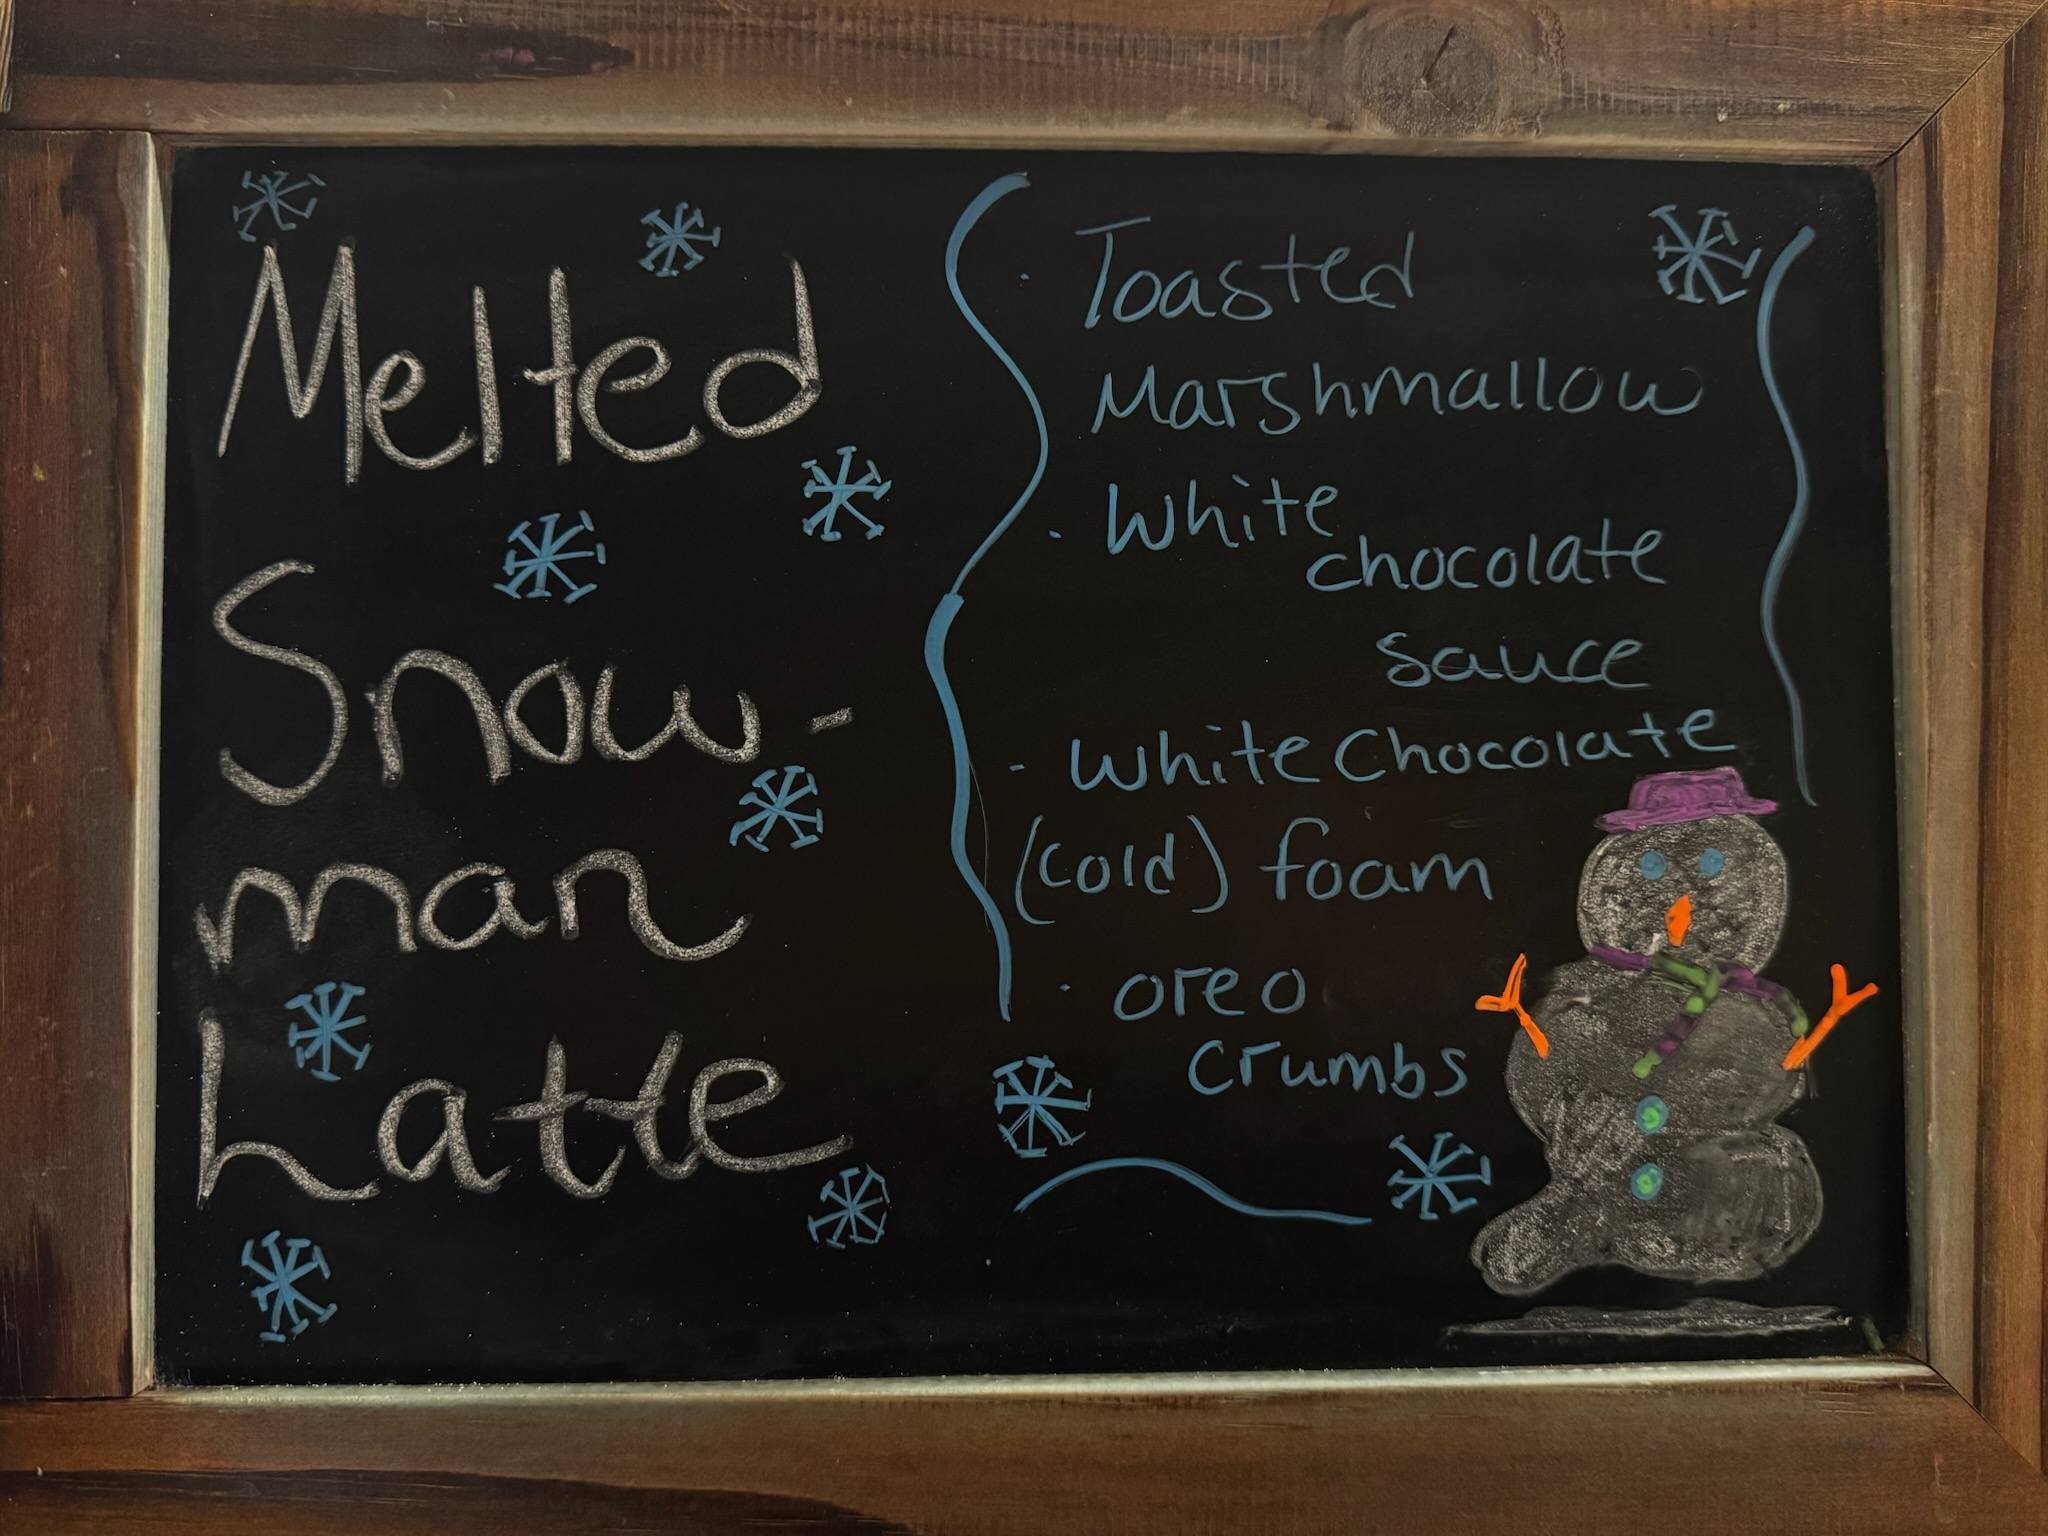 Melted
Snow-
man
Latte
· Toasted
Marshmallow
· White
chocolate
sauce
- white Chocolate
(cold) foam
· oreo
crumbs